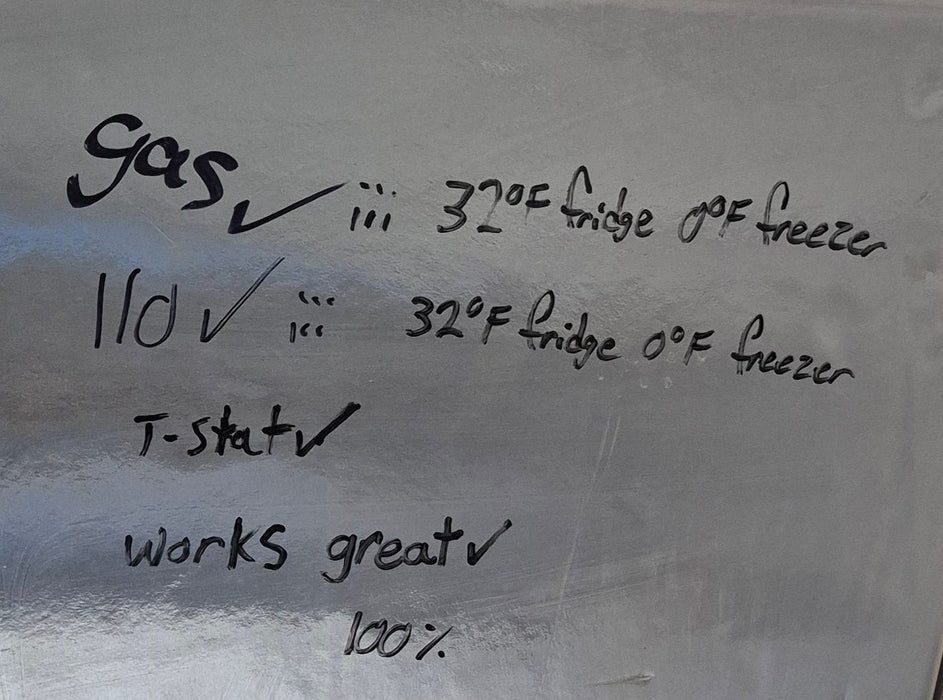 gas✓ ⁝⁝⁝ 32°F fridge 0°F freezer
110✓ ⁝⁝⁝ 32°F fridge 0°F freezer
T-stat✓
works great✓
100%